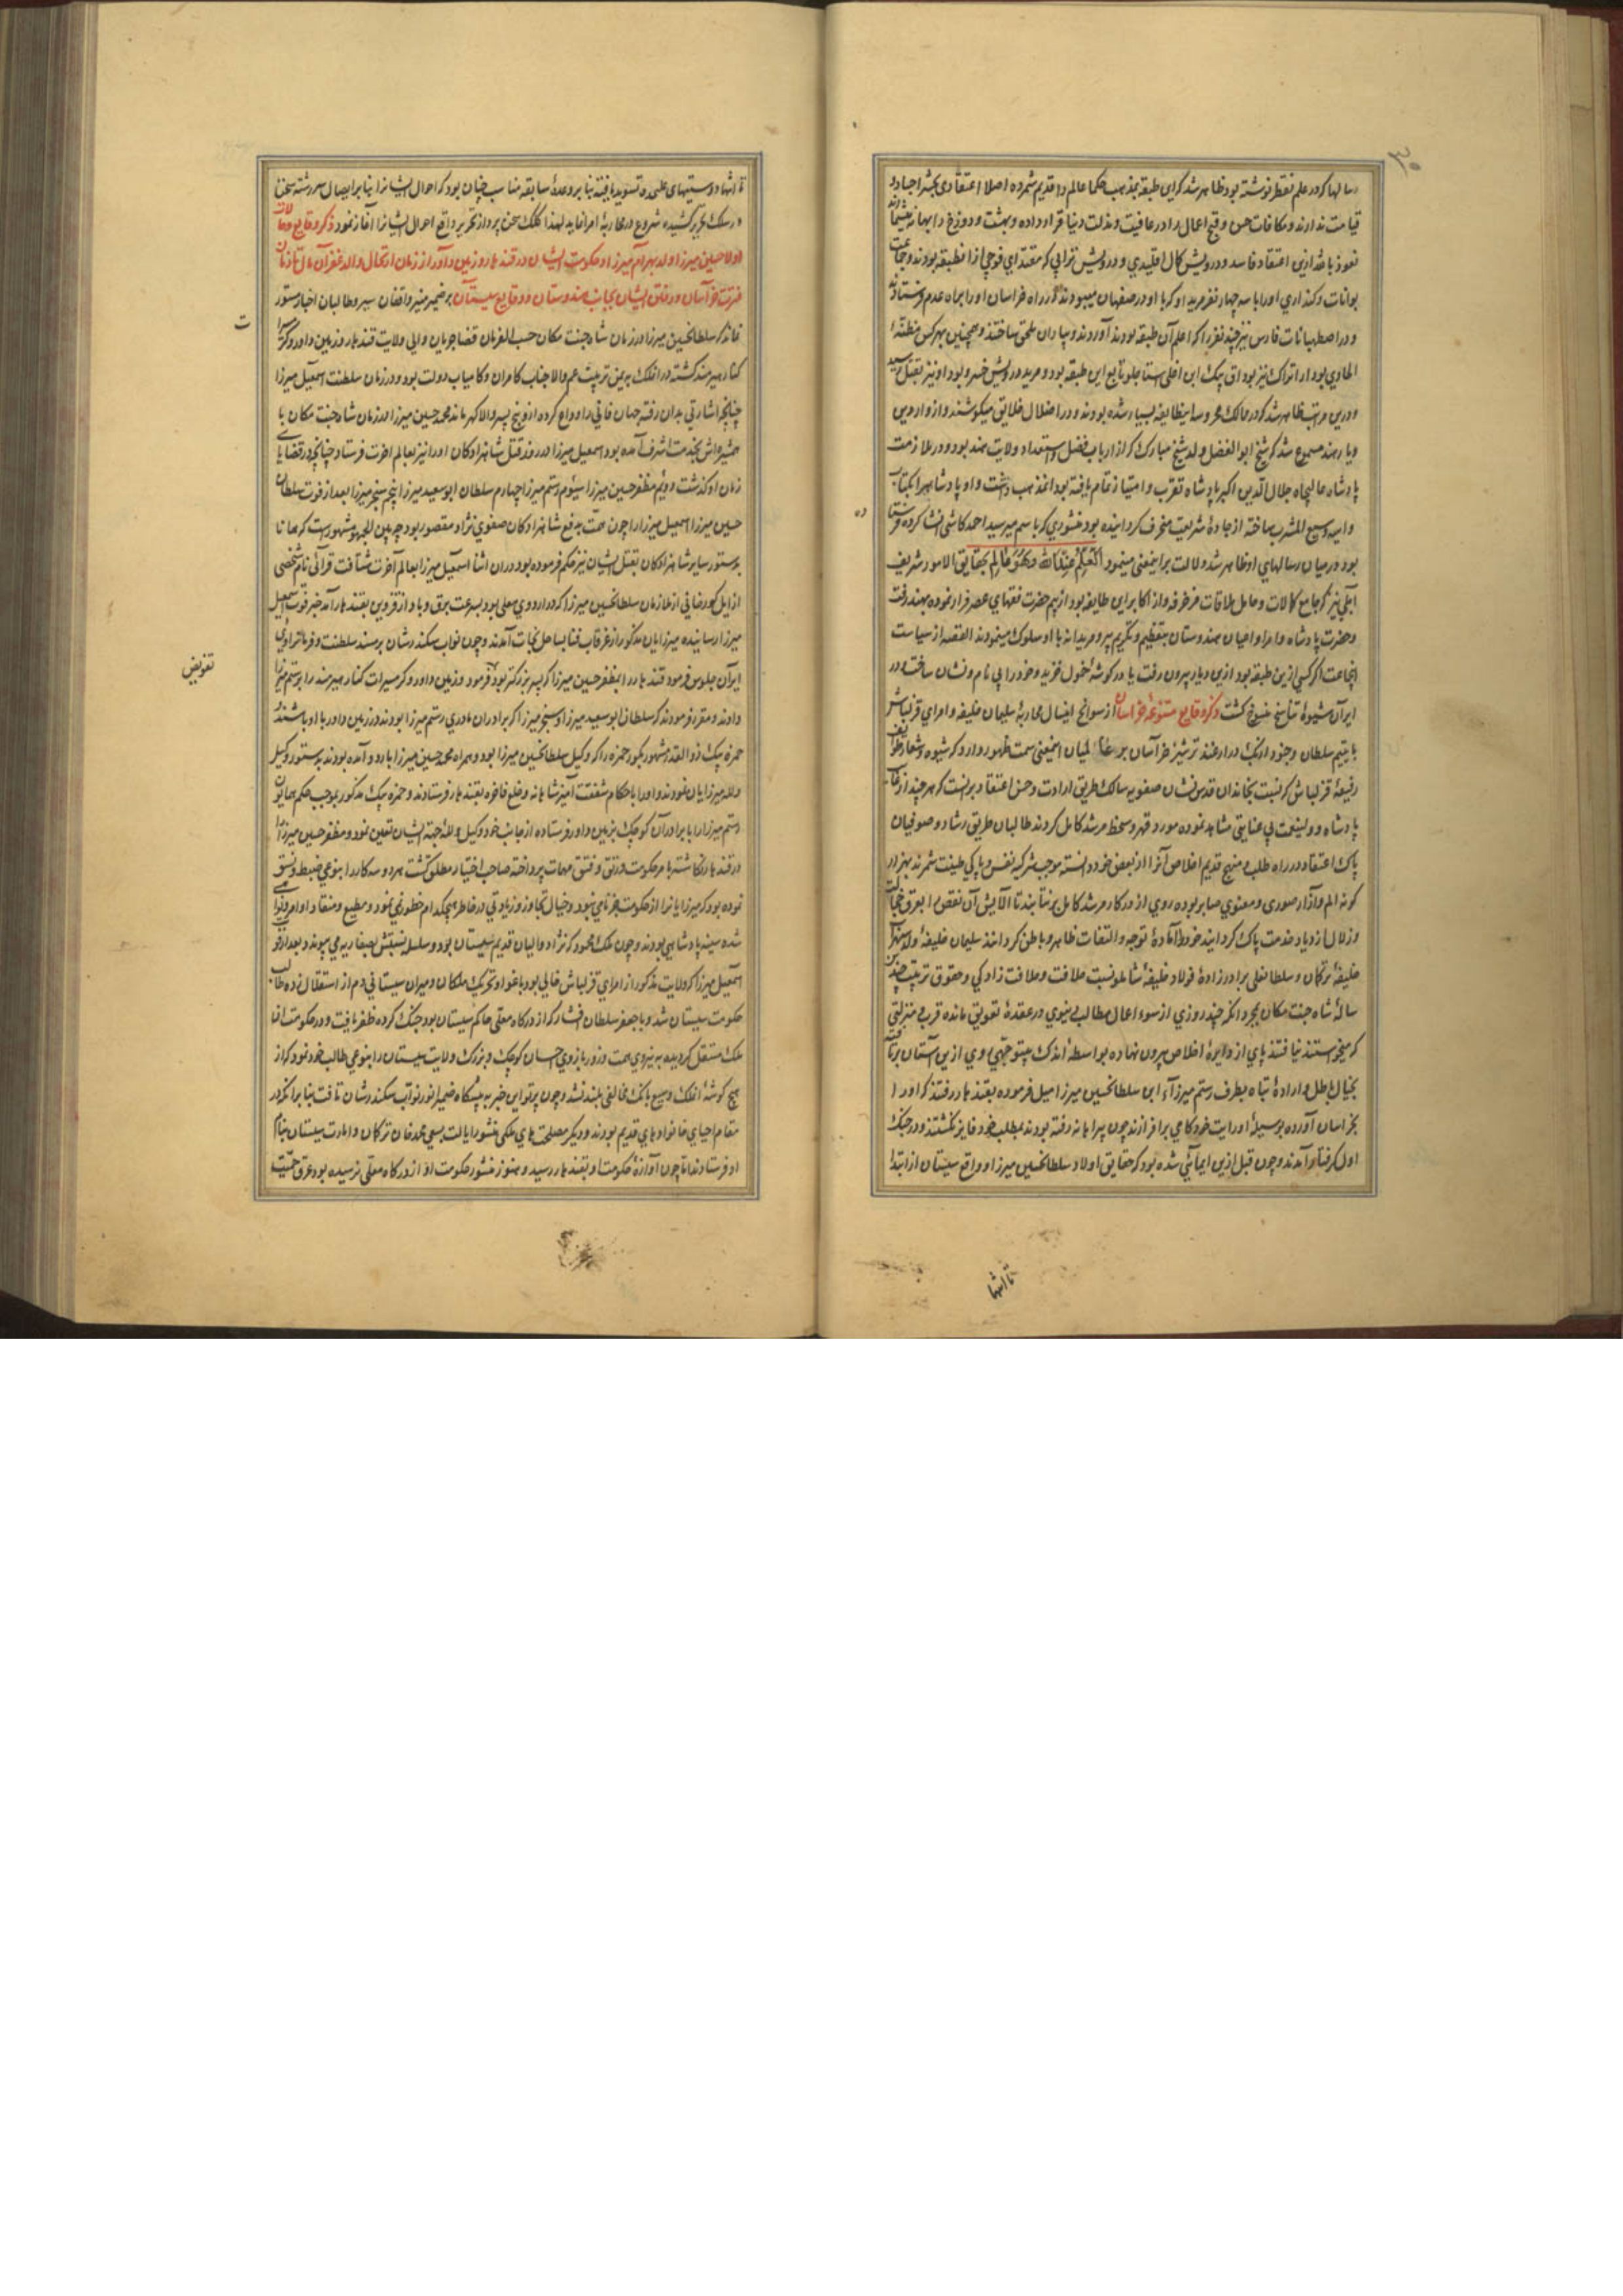 رسالها که در علم نقطه نوشته بود ظاهر شد که این طبقه بمذهب حکما عالم را قدیم شمرده اصلا اعتقادی بحشر اجساد و
قیامت ندارند و مکافات حسن و قبح اعمال را در عافیت و مذلت دنیا قرار داده و بهشت و دوزخ را بهمان میشمارند
نعوذ بالله ازین اعتقاد فاسد و درویش کمال اقلیدی و درویش ترابی که مقتدای فوجی از آن طبقه بودند و جماعت
بوانات و کنداری او را با سه چهار نفر مرید او که با او در صفهان میبودند در راه خراسان او را براه عدم فرستادند
و در اصطهبانات فارس نیز چند نفر را که اعلم آن طبقه بودند آوردند و بیاران ملحق ساختند و همچنین بهر کس مظنه
الحادی بود از اتراک نیز بوداق بیک ابن اغلی استاجلو تابع این طبقه بود و مرید درویش خسرو بود او نیز بقتل رسید
و درین مراتب ظاهر شد که در ممالک محروسه اینطایفه بسیار شده بودند و در اضلال خلایق میکوشند و از واردین
دیار هند مسموع شد که شیخ ابو الفضل ولد شیخ مبارک که از ارباب فضل و استعداد ولایت هند بود و در ملازمت
پادشاه عالیجاه جلال الدین اکبر پادشاه تقرب و امتیاز تمام یافته بود این مذهب داشت و او پادشاه را بکلمات
واهیه وسیع المشرب ساخته از جادهٔ شریعت منحرف گردانیده بود منشوری که باسم میر سید احمد کاشی انشا کرده فرستاده
ده
بود در میان رسالهای او ظاهر شد دلالت بر اینمعنی مینمود العلم عند الله و هو عالم بحقایق الامور شریف
آملی نیز که جامع کمالات و حامل طامات مزخرفه و از اکابر این طایفه بود از بیم حضرت فقهای عصر فرار نموده بهند رفت
و حضرت پادشاه و امرا و اعیان هندوستان بتعظیم و تکریم پیر و مریدانه با او سلوک مینمودند القصه از سیاست
انجماعت اگر کسی ازین طبقه بود ازین دیار بیرون رفت یا در گوشهٔ خمول خزید و خود را بی نام و نشان ساخت و در
ایران شیوهٔ تناسخ منسوخ گشت ذکر وقایع متنوعه خراسان از سوانح اینسال محاربهٔ سلیمان خلیفه و امرای قزلباش
با یتیم سلطان و جنود ازبک در ارغند ترشیز خراسان بر عالمیان اینمعنی سمت ظهور دارد که شیوه و شعار طوایف
رفیعهٔ قزلباش که نسبت بخاندان قدس نشان صفویه سالک طریق ارادت و حسن اعتقاد بر انست که هر چند از جانب
پادشاه و ولینعمت بی عنایتی مشاهد نموده مورد قهر و سخط مرشد کامل گردند طالبان طریق رشاد و صوفیان
پاک اعتقاد در راه طلب و منهج قدیم اخلاص آنرا از نقص خود دانسته موجب تزکیه نفس و پاکی طینت شمرند بهزار
گونه الم و آزار صوری و معنوی صابر بوده روی از درگاه مرشد کامل بر نتابند تا آلایش آن نقص را بعرق خجالت
و زلال ازدیاد خدمت پاک گردانیده خود را آمادهٔ توجه و التفات ظاهر و باطن گردانند سلیمان خلیفهٔ ولد سهراب
خلیفهٔ ترکمان و سلطانعلی برادرزادهٔ فولاد خلیفهٔ شاملو نسبت خلافت و خلافت زادگی و حقوق تربیت چندین
سالهٔ شاه جنت مکان بمجرد انکه چند روزی از سوء اعمال مطالب دنیوی در عقدهٔ تعویق مانده قرب و منزلتی
که میخواستند نیافتند پای از دایرهٔ اخلاص بیرون نهاده بواسطهٔ اندک بیتوجهی روی ازین آستان برتافته
بخیال باطل و ارادهٔ تباه بطرف رستم میرزاء ابن سلطانحسین میرزا میل فرموده بقندهار رفتند که او را
بخراسان آورده بوسیلهٔ او رایت خودکامی برافرازند چون بیراهانه رفته بودند بمطلب خود فایز نگشتند و در جنک
اول گرفتار آمدند و چون قبل ازین ایمائی شده بود که حقایق اولاد سلطانحسین میرزا و واقع سیستان از ابتدا
تا انتها
تا انتها دوستیهای علیحده تسوید یافته بنابر وعدهٔ سابقه مناسب چنان بود که احوال ایشانرا بنابر ایصال سررشته سخن
در سلک تحریر کشیده شروع در محاربهٔ امرا نماید لهذا کلک سخن پرداز تحریر واقع احوال ایشانرا آغاز نمود ذکر وقایع حالات
اولاد حسین میرزا ولد بهرام میرزا و حکومت ایشان در قندهار و زمین داور از زمان ارتحال والد غفران مآل تا زمان
فترت خراسان و رفتن ایشان بجانب هندوستان و وقایع سیستان بر ضمیر منیر واقفان سیر و طالبان اخبار مستور
نماند که سلطانحسین میرزا در زمان شاه جنت مکان حسب الفرمان قضا جریان والی ولایت قندهار و زمین داور و گرمسیرات
ت
کنار هیرمند گشته در انملک بیمن تربیت عم والاجناب کامران و کامیاب دولت بود و در زمان سلطنت اسمعیل میرزا
چنانچه اشارتی بدان رفته جهان فانی را وداع کرده ازو پنج پسر والاگهر ماند محمد حسین میرزا در زمان شاه جنت مکان با
همشیره اش بخدمت اشرف آمده بود اسمعیل میرزا در روز قتل شاهزادکان او را نیز بعالم اخرت فرستاد چنانچه در قضایای
زمان او گذشت دویم مظفر حسین میرزا سیوم رستم میرزا چهارم سلطان ابو سعید میرزا پنجم سنجر میرزا بعد از فوت سلطان
حسین میرزا اسمعیل میرزا را چون همت بدفع شاهزادکان صفوی نژاد مقصور بود چه بین الجمهور مشهور است که همانا
بدستور سایر شاهزادکان بقتل ایشان نیز حکم فرموده بود در آن اثنا اسمعیل میرزا بعالم آخرت شتافت قرائی نام شخصی
از ایل کهورضانی از ملازمان سلطانحسین میرزا که در اردوی معلی بود بسرعت برق و باد از قزوین بقندهار آمد خبر فوت اسمعیل
میرزا رسانیده میرزایان مذکور از غرقاب فنا بساحل نجات آمدند و چون نواب سکندرشان بر مسند سلطنت و فرمانروائی
ایران جلوس فرمود قندهار را بمظفر حسین میرزا که پسر بزرگتر بود فرمود و زمین داور و گرمسیرات کنار هیرمند را برستم میرزا
تفویض
دادند و مقرر فرمودند که سلطان ابو سعید میرزا و سنجر میرزا که برادران مادری رستم میرزا بودند در زمین داور با او باشند
حمزه بیک ذو القدر مشهور بکور حمزه را که وکیل سلطانحسین میرزا بود و همراه محمد حسین میرزا باردو آمده بودند بدستور وکیل
و لله میرزایان نمودند و او را با احکام شفقت آمیز شاهانه و خلع فاخره بقندهار فرستادند و حمزه بیک مذکور بموجب حکم همایون
رستم میرزا را با برادران کوچک بزمین داور فرستاده از جانب خود وکیل و لله جهة ایشان تعیین نمود و مظفر حسین میرزا را
در قندهار نگاشته بامر حکومت و رتق و فتق مهمات پرداخته صاحب اختیار مطلق گشت و هر دو سرکار را بنوعی ضبط و نسق
نموده بود که میرزایانرا از حکومت جز نامی نبود و خیال تجاوز و زیادتی در خاطر هیچکدام خطور نمی نمود و مطیع و منقاد اوامر و نواهی
شده سفید پادشاهی بودند و چون ملک محمود که نژاد والیان قدیم سیستان بود و سلسله نسبتش بصفاریه می پیوندد بعد از فوت
اسمعیل میرزا که ولایت مذکور از امرای قزلباش خالی بود باغوا و تحریک ملکان و میران سیستانی دم از استقلال زده طالب
حکومت سیستان شد و با جعفر سلطان افشار که از درگاه معلی حاکم سیستان بود جنک کرده ظفر یافت و در حکومت انا
ملک مستقل گردیده به نیروی همت و زور بازوی احسان کوچک و بزرگ ولایت سیستان را بنوعی طالب خود نمود که از
هیچ گوشهٔ انملک وسیع بانک مخالفی بلند نشد و چون پرتو این خبر به پیشگاه ضمیر انور نواب سکندر شان تافت بنابر انکه در
مقام احیای خانوادهای قدیم بودند و دیگر مصلحت های ملکی منشور ایالت بسعی محمد خان ترکمان و امارت سیستان بنام
او فرستادند اما چون آوازهٔ حکومت او بقندهار رسید و هنوز منشور حکومت او از درگاه معلی نرسیده بود عرق حمیت